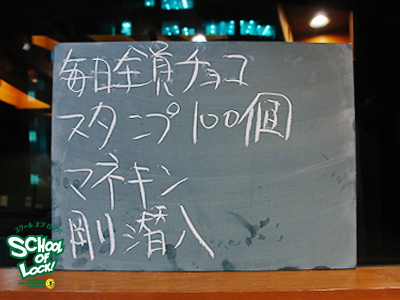 毎日全員チョコ
スタンプ100個
マネキン
剛潜入
スクール オブ ロック
SCHOOL
OF
LOCK!